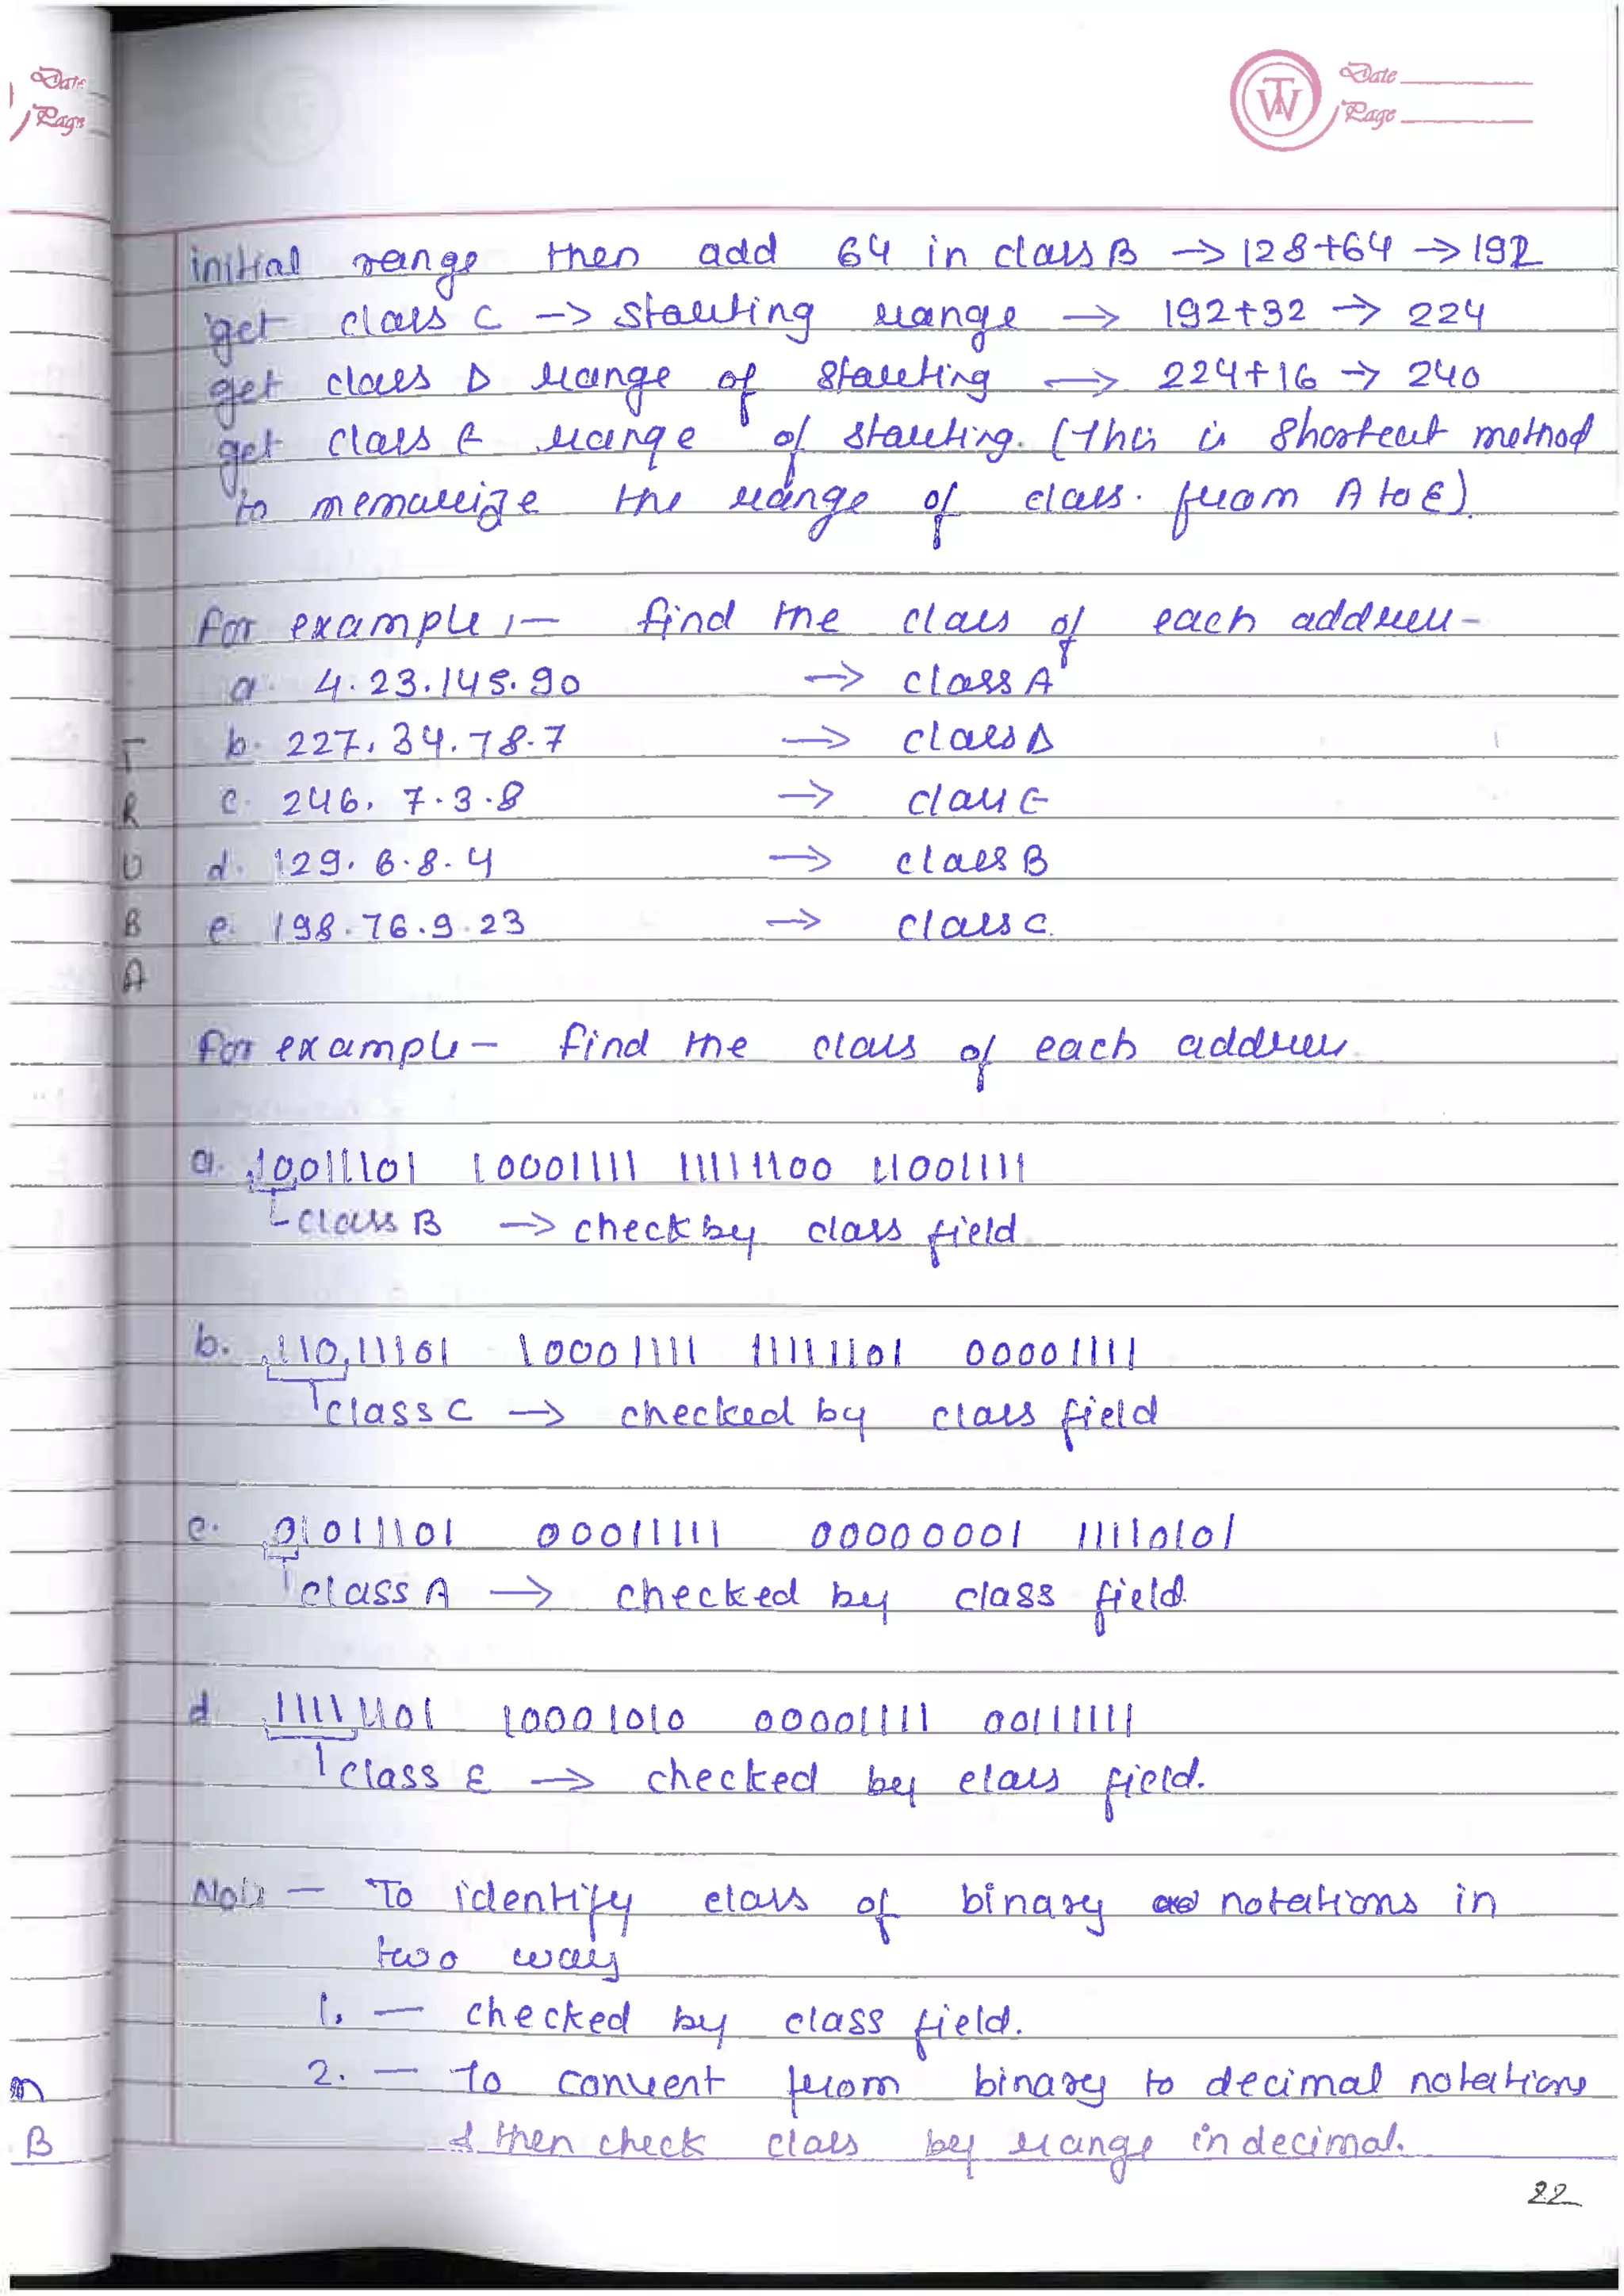 Date
Page
TW
Date
Page
initial range then add 64 in class B → 128+64 → 192
get class C → starting range → 192+32 → 224
get class D range of starting → 224+16 → 240
get class E range of starting. (This is shortcut method
to memorize the range of class. from A to E).
For example :- find the class of each address-
a. 4.23.145.90 → class A
b. 227.34.78.7 → class D
c. 246.7.3.8 → class E
d. 129.6.8.4 → class B
e. 198.76.9.23 → class C.
For example - find the class of each address
a. 10011101 10001111 11111100 11001111
class B → check by class field.
b. 11011101 10001111 11111101 00001111
class C → checked by class field
c. 01011101 00011111 00000001 11110101
class A → checked by class field.
d. 11111101 10001010 00001111 00111111
class E → checked by class field.
Note - To identify class of binary notations in
two way
1. - checked by class field.
2. - To convert from binary to decimal notations
& then check class by range in decimal.
22
I
R
U
B
A
n
B